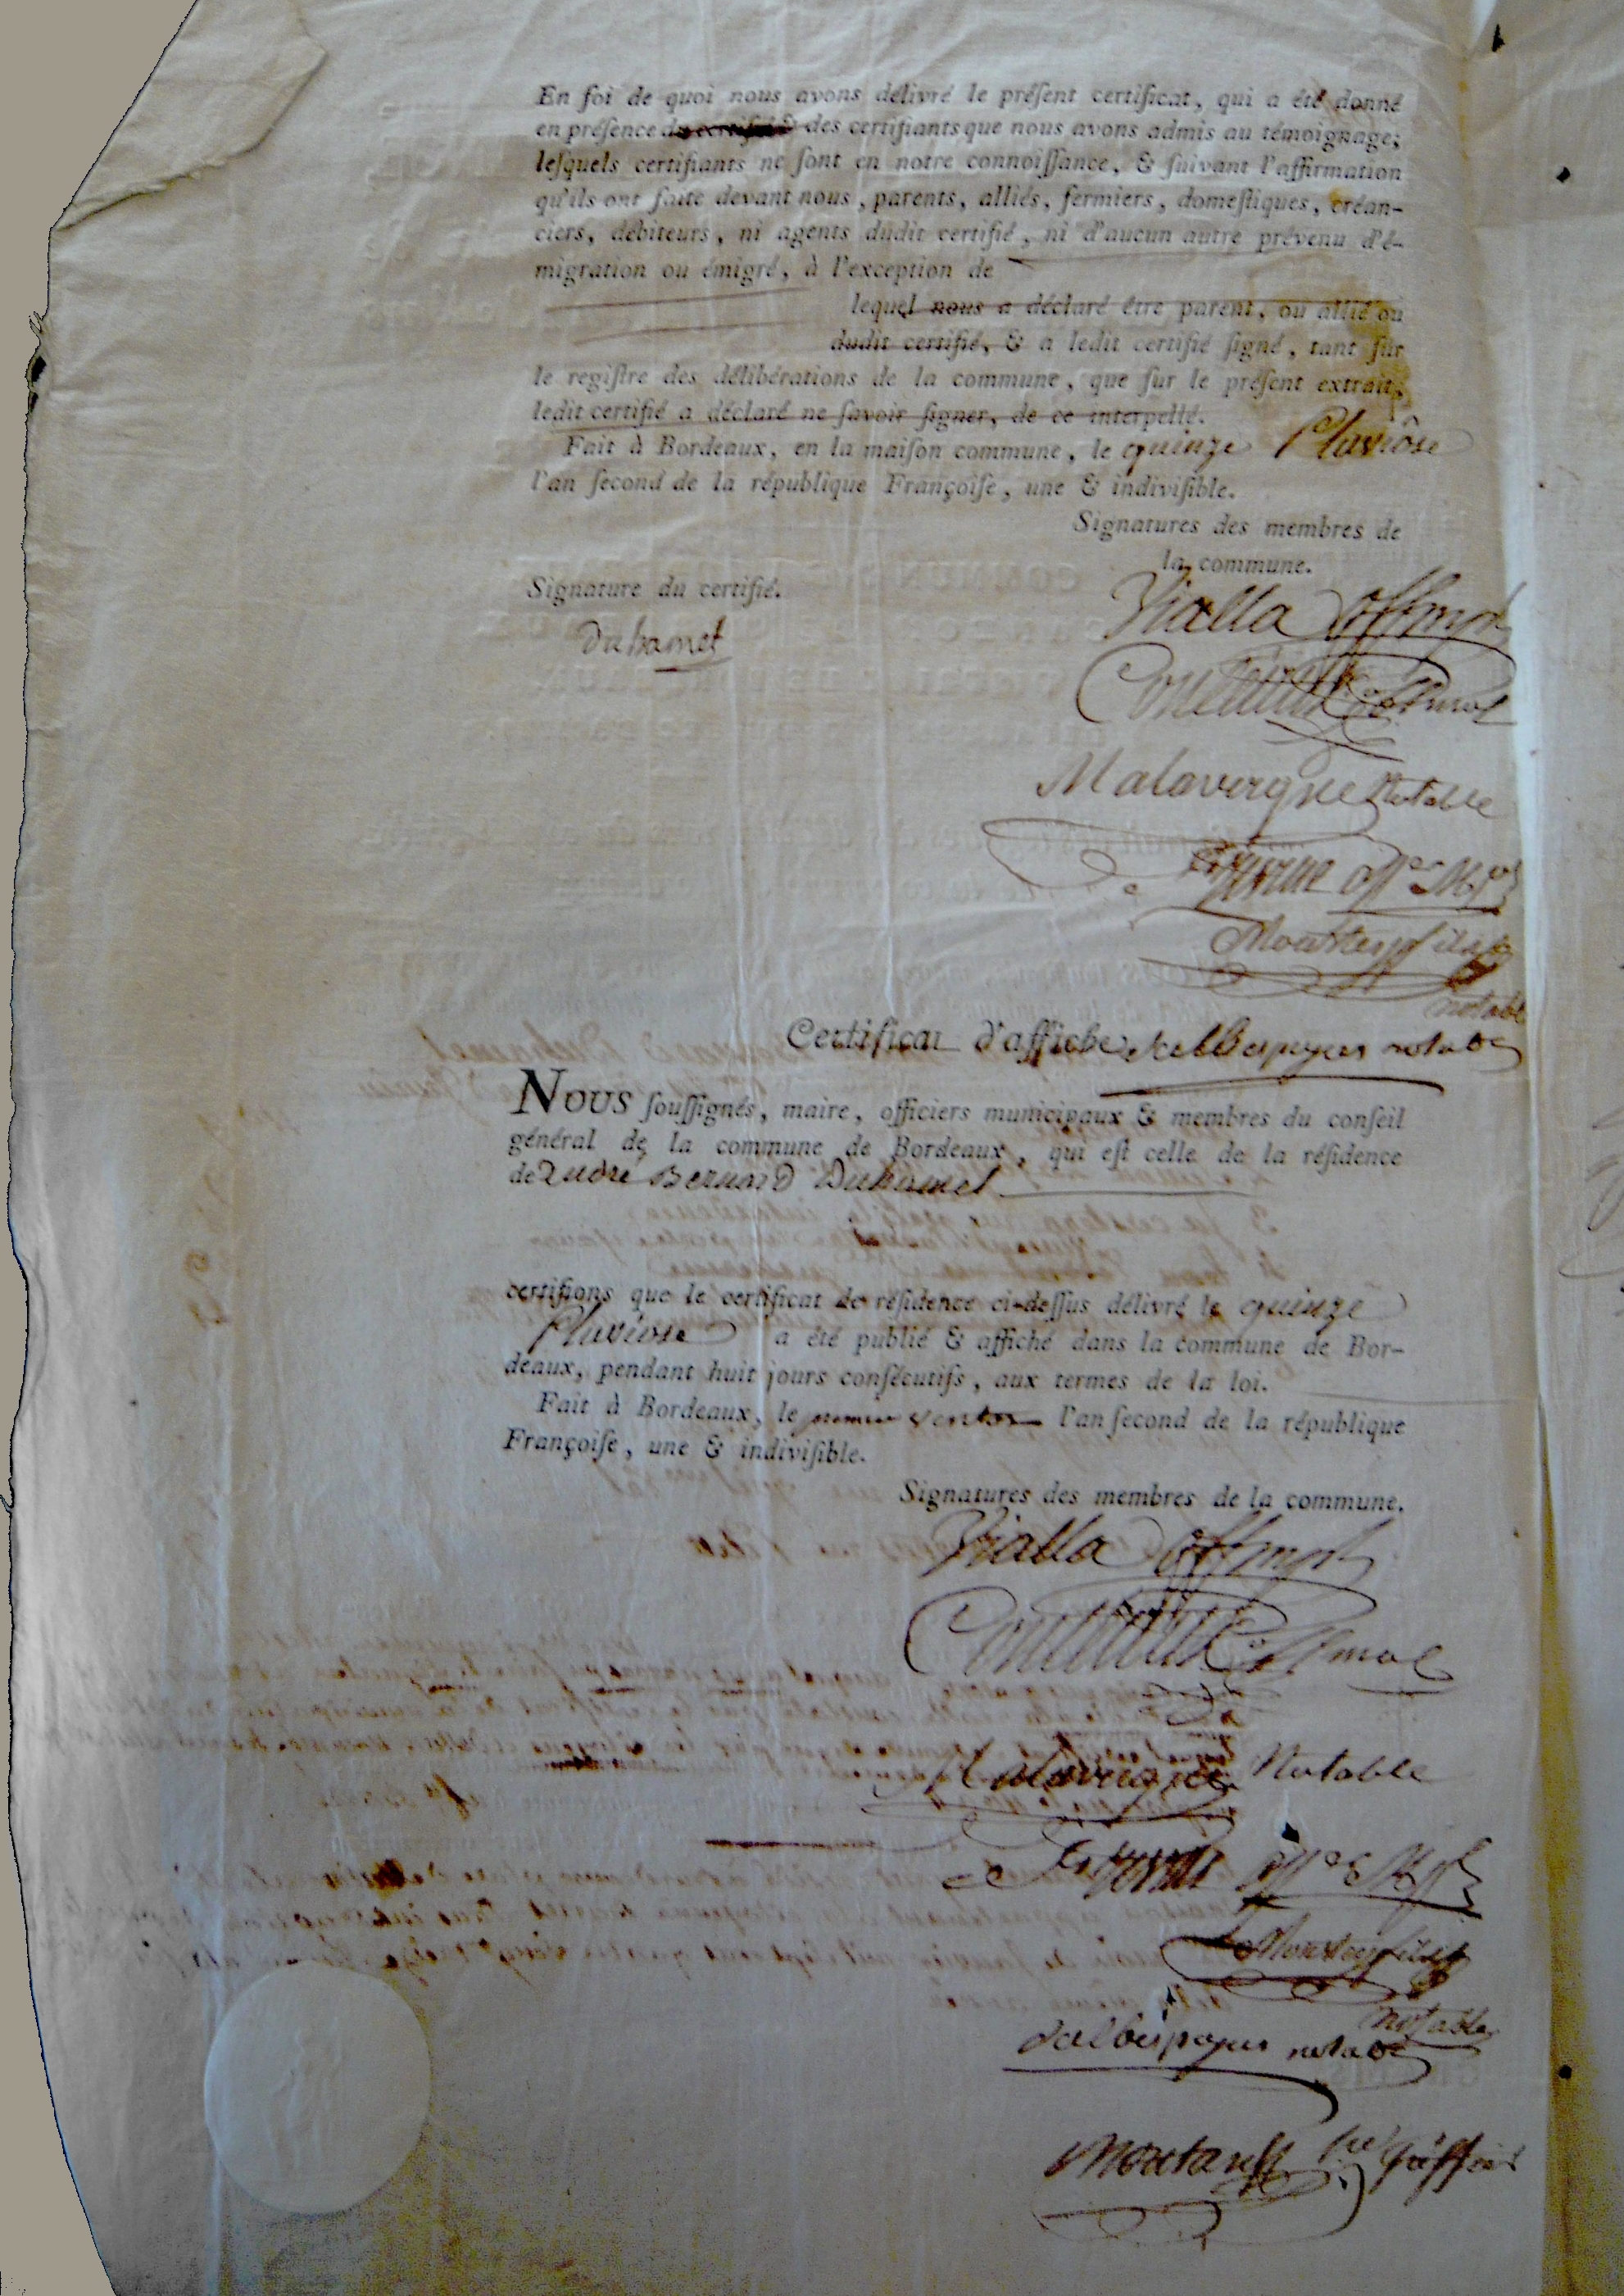 En foi de quoi nous avons délivré le préſent certificat, qui a été donné
en préſence des certifiants que nous avons admis au témoignage;
leſquels certifiants ne ſont en notre connoiſſance, & ſuivant l'affirmation
qu'ils ont faite devant nous, parents, alliés, fermiers, domeſtiques, créan-
ciers, débiteurs, ni agents dudit certifié, ni d'aucun autre prévenu d'é-
migration ou émigré, à l'exception de
lequel nous a déclaré être parent, ou allié ou
dudit certifié, & a ledit certifié ſigné, tant ſur
le regiſtre des délibérations de la commune, que ſur le préſent extrait,
ledit certifié a déclaré ne ſavoir ſigner, de ce interpellé.
Fait à Bordeaux, en la maiſon commune, le quinze Pluviôse
l'an ſecond de la république Françoiſe, une & indiviſible.
Signatures des membres de
la commune.
Signature du certifié.
Duhamel
Vialla offmpl
Malavergne Notable
notable
Certificat d'affiche dalbespeyres notable
NOUS ſouſſignés, maire, officiers municipaux & membres du conſeil
général de la commune de Bordeaux, qui eſt celle de la réſidence
de André Bernard Duhamel
certifions que le certificat de réſidence ci-deſſus délivré le quinze
Pluviose a été publié & affiché dans la commune de Bor-
deaux, pendant huit jours conſécutifs, aux termes de la loi.
Fait à Bordeaux, le premier ventose l'an ſecond de la république
Françoiſe, une & indiviſible.
Signatures des membres de la commune.
Vialla offmpl
Malavergne Notable
notable
dalbespeyres notable
greffier